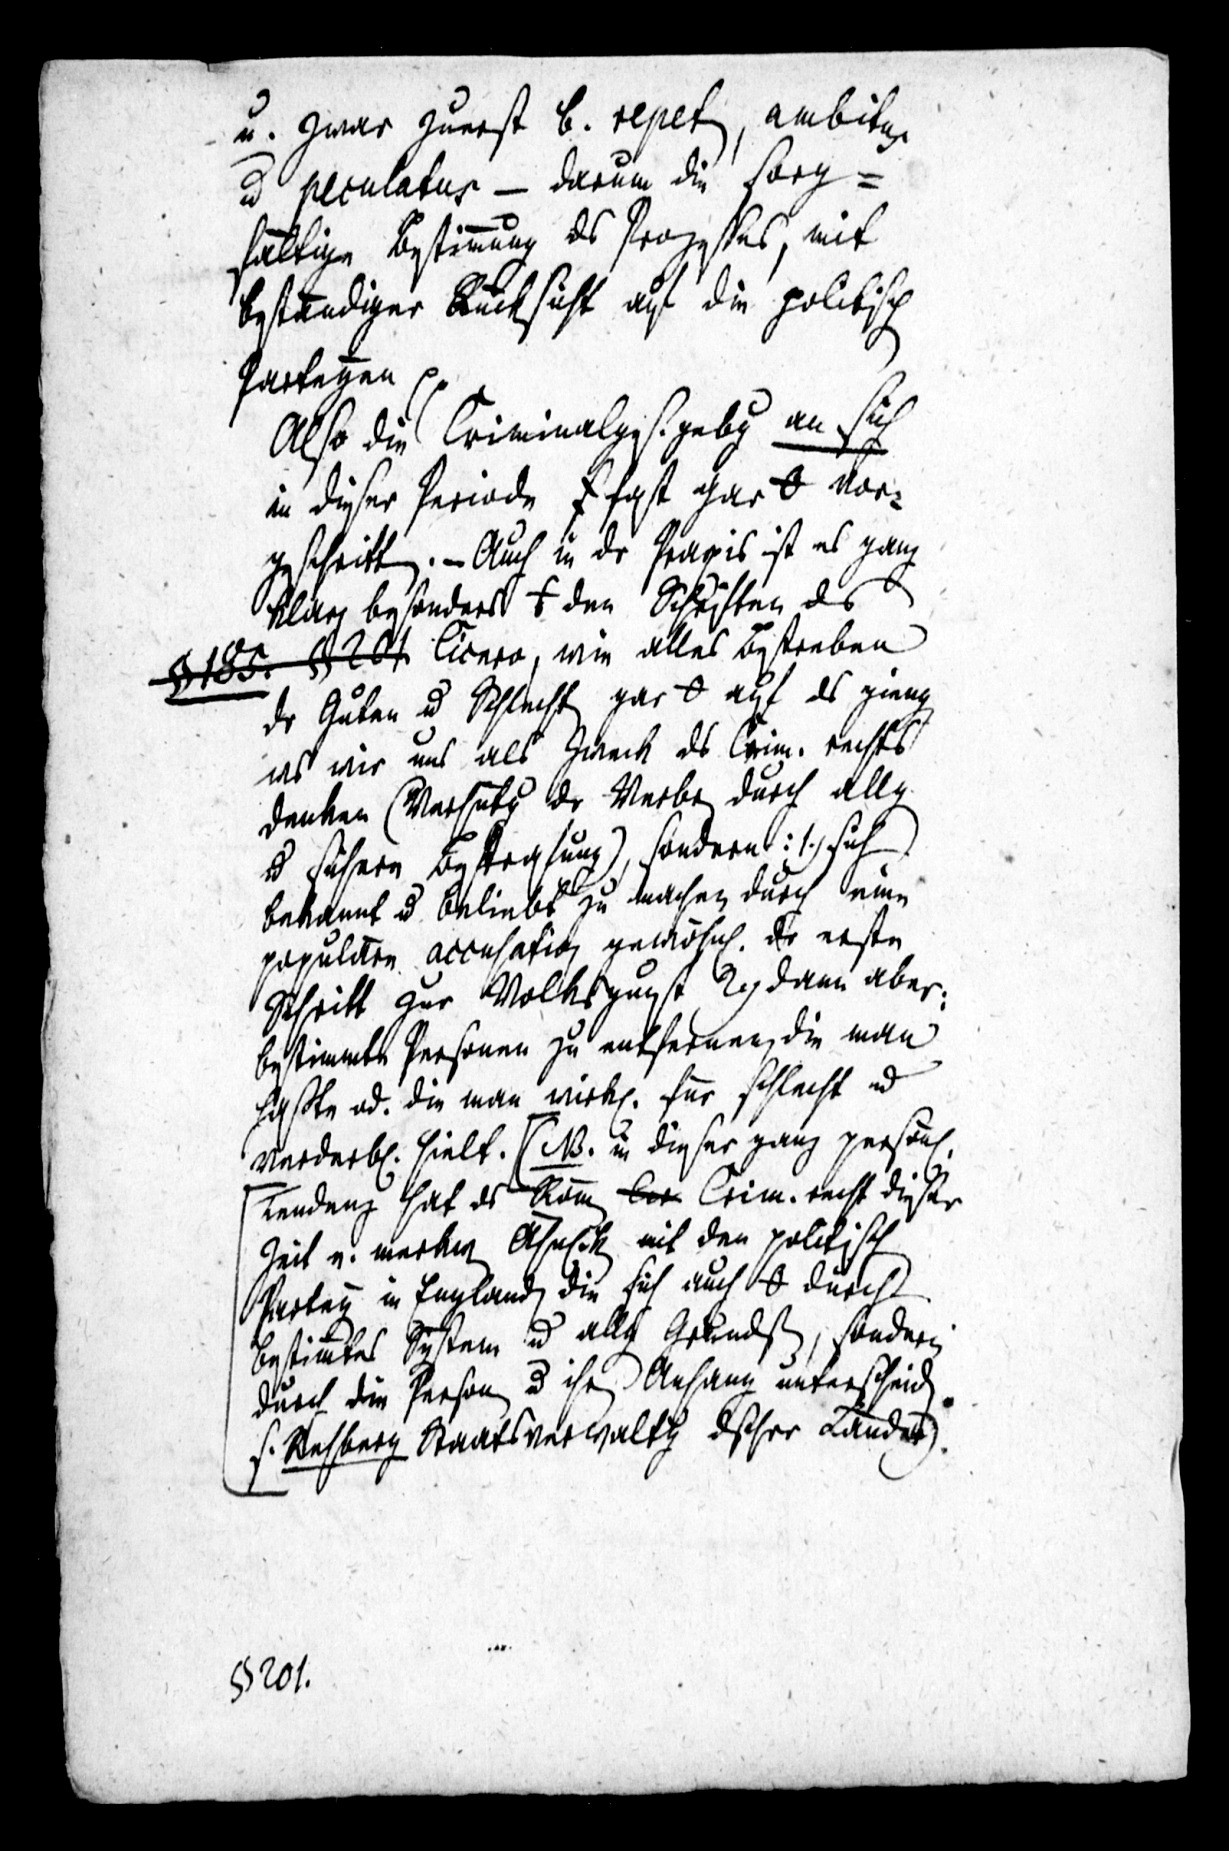 u. zwar zuerst b. repet, ambitus
u peculatus – darum die sorg=
fältige Bestimmung des Prozesses, mit
beständiger Rücksicht auf die politisch
Parteyen
Also die Criminalgesgebg an sich
in dieser Periode fast gar vor=
geschritt. – Auch in dr Praxis ist es ganz
klar besonders den Schriften des
§ 185. § 201 Cicero, wie alles Bestreben
dr Guten u Schlecht gar auf das gieng
was wir uns als Zweck des Crim. rechts
denken (Verhütg dr Verbr durch allg
u sichere Bestrafung), sondern: 1.) sich
bekannt u beliebt zu machen durch eine
populäre accusation gewöhnl. dr erste
Schritt zur Volksgunst 2.) dann aber:
bestimmte Personen zu entfernen, die man
haßte od. die man wirkl. für schlecht u
verderbl. hielt. [NB. in dieser ganz persönl.
Tendenz hat das Röm Crim. recht dieser
Zeit e. merkw Ähnlichk mit den politisch
Partey in England, die sich auch durch
bestimmtes System u allg Grundss, sondern
durch die Person u ihren Anhang unterscheid.
s. Rehberg Staatsverwaltg dtscher Länder).
§ 201.